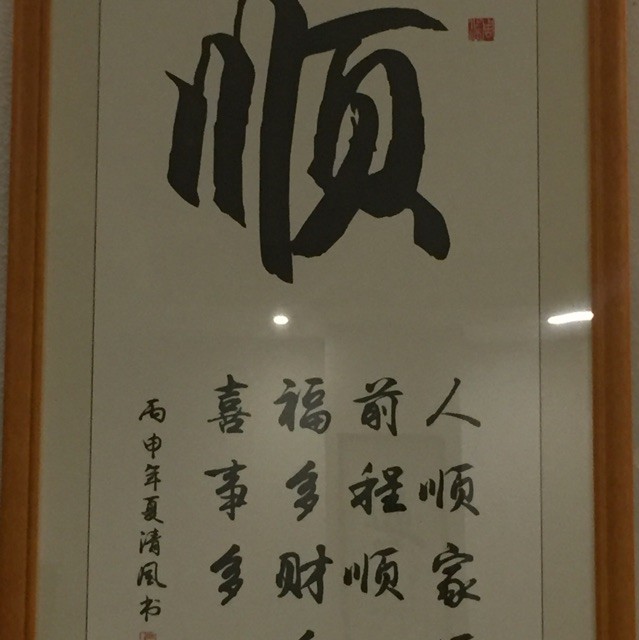 顺
人顺家
前程顺
福多财
喜事多
丙申年夏清风书